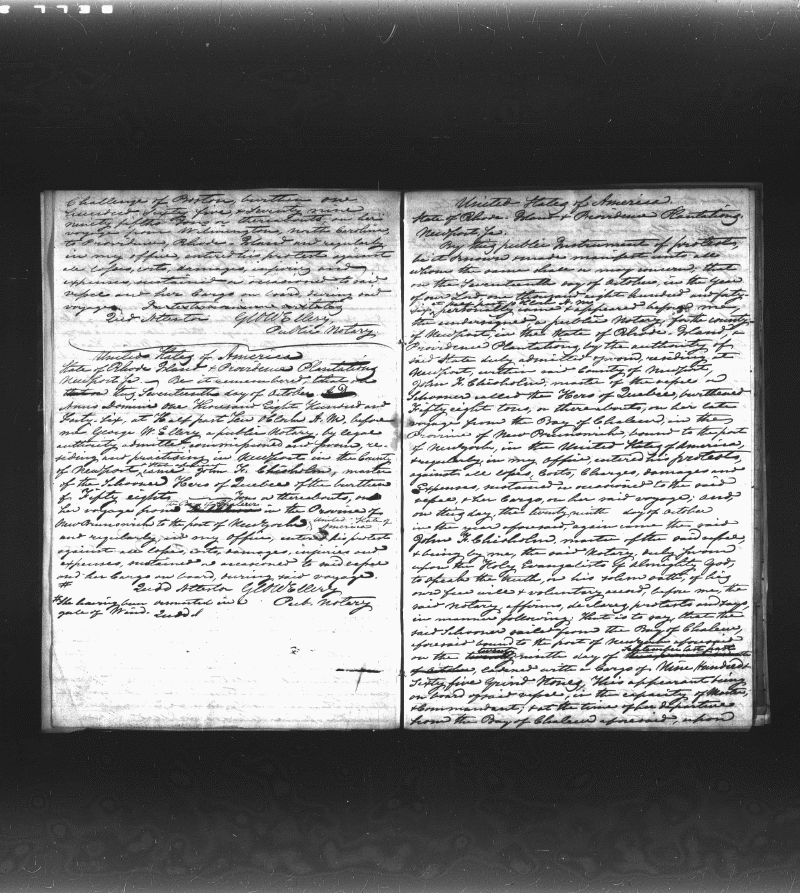 Challenge of Boston, burthen one
hundred Sixty five, & Seventy nine
ninety fifths Tons or thereabouts, on her
voyage from Wilmington, North Carolina,
to Providence, Rhode-Island and regularly,
in my office, entered his protest against
all losses, costs, damages, injuries and
expenses, sustained or occasioned to said
vessel and her Cargo on board, during said
voyage.
Quod Attestor Geo W Ellery
Public Notary
United States of America
State of Rhode Island & Providence Plantations
Newport Ss. Be it remembered, that
on this Seventeenth day of October
Anno Domini One Thousand Eight Hundred and
Forty Six, at Half past Ten o'Clock A.M. before
me George W. Ellery, a public Notary, by legal
authority admitted, commissioned and sworn, re-
siding and practising in Newport in the County
of Newport, came John H. Chisholm, master
of the Schooner Hero of Quebec of the burthen
of Fifty eight Tons or thereabouts, on
her voyage from in the Province of
New Brunswick to the port of New York
United States of
America
and regularly, in my office, entered his protest
against all losses, costs, damages, injuries and
expenses, sustained or occasioned to said vessel
and her Cargo on board, during said voyage
Quod Attestor Geo W Ellery
Pub. Notary
he having been in a
gale of Wind. Quod
United States of America.
State of Rhode Island & Providence Plantations.
Newport Ss.
By this public Instrument of protest,
be it known and made manifest unto all
whom the same shall or may concern, that
on the Seventeenth day of October, in the Year
of our Lord one thousand eight hundred and forty-
six, personally came & appeared before me
the undersigned a public Notary, of the County
of Newport in the State of Rhode Island &
Providence Plantations, by the authority of
said State duly admitted & sworn, residing at
Newport, within said County of Newport,
John H. Chisholm, master of the vessel or
Schooner called the Hero of Quebec, burthened
Fifty eight tons, or thereabouts, on her late
voyage from the Bay of Chaleur, in the
Province of New Brunswick bound to the port
of New York, in the United States of America,
& regularly, in my office entered his protest,
against all losses, Costs, Charges, damages and
Expenses, sustained or occasioned to the said
vessel, & her Cargo, on her said voyage; And
on this day, the twenty ninth day of October
in the year aforesaid again came the said
John H. Chisholm, master of the said vessel,
& being by me, the said Notary, duly sworn
upon the Holy Evangelists of almighty God,
to speak the truth, on his solemn oath, of his
own free will & voluntary accord, before me, the
said Notary, affirms, declares, protests and says,
in manner following; That is to say, that the
said Schooner sailed from the Bay of Chaleur,
aforesaid bound to the port of New York aforesaid
on the twenty ninth day of September last past
laden with a Cargo of Nine Hundred &
Sixty five Grind Stones, This appearant being
on board of said vessel, in the capacity of Master,
& Commandant; & at the time of her departure
from the Bay of Chaleur aforesaid, upon